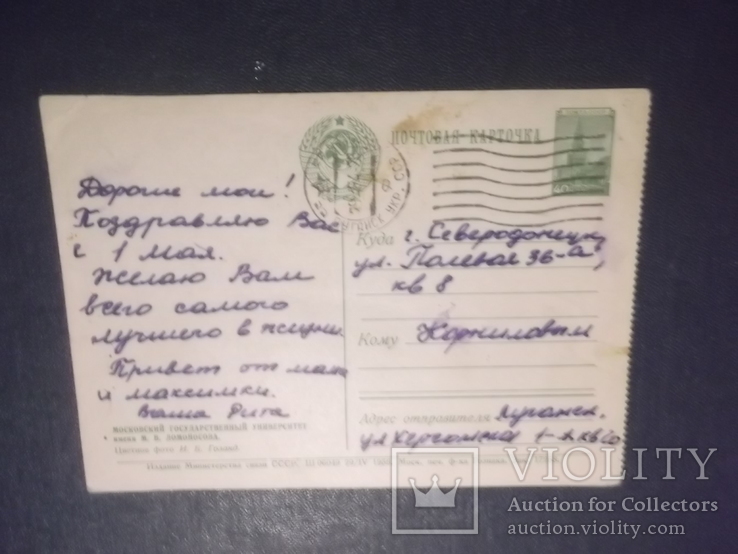 ПОЧТОВАЯ КАРТОЧКА
Дорогие мои!
Поздравляю Вас
с 1 Мая.
Желаю Вам
всего самого
лучшего в жизни.
Привет от мамы
и Максимки.
Ваша Рита
МОСКОВСКИЙ ГОСУДАРСТВЕННЫЙ УНИВЕРСИТЕТ
имени М. В. ЛОМОНОСОВА.
Цветное фото
Издание Министерства связи СССР.
Куда г. Северодонецк,
ул. Полевая 36-а,
кв 8
Кому Корниловым
Адрес отправителя Луганск,
ул 1-а кв
VIOLITY
Auction for Collectors
auction.violity.com